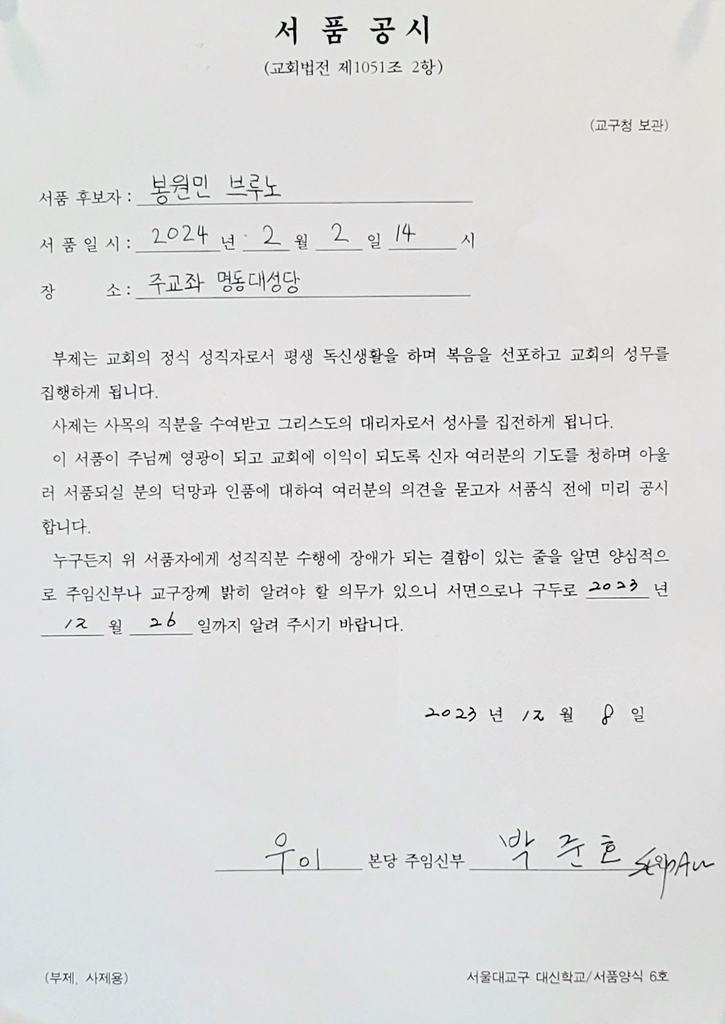 서 품 공 시
(교회법전 제1051조 2항)
(교구청 보관)
서품 후보자 : 봉원민 브루노
서 품 일 시 : 2024 년 2 월 2 일 14 시
장 소 : 주교좌 명동대성당
부제는 교회의 정식 성직자로서 평생 독신생활을 하며 복음을 선포하고 교회의 성무를
집행하게 됩니다.
사제는 사목의 직분을 수여받고 그리스도의 대리자로서 성사를 집전하게 됩니다.
이 서품이 주님께 영광이 되고 교회에 이익이 되도록 신자 여러분의 기도를 청하며 아울
러 서품되실 분의 덕망과 인품에 대하여 여러분의 의견을 묻고자 서품식 전에 미리 공시
합니다.
누구든지 위 서품자에게 성직직분 수행에 장애가 되는 결함이 있는 줄을 알면 양심적으
로 주임신부나 교구장께 밝히 알려야 할 의무가 있으니 서면으로나 구두로 2023 년
12 월 26 일까지 알려 주시기 바랍니다.
2023 년 12 월 8 일
우이 본당 주임신부 박준호
(부제, 사제용)
서울대교구 대신학교/서품양식 6호